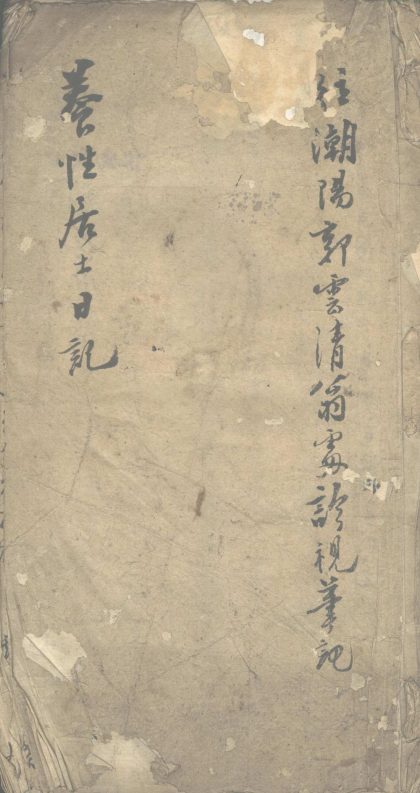 往潮陽郭雲清翁處診視筆記
養性居士日記